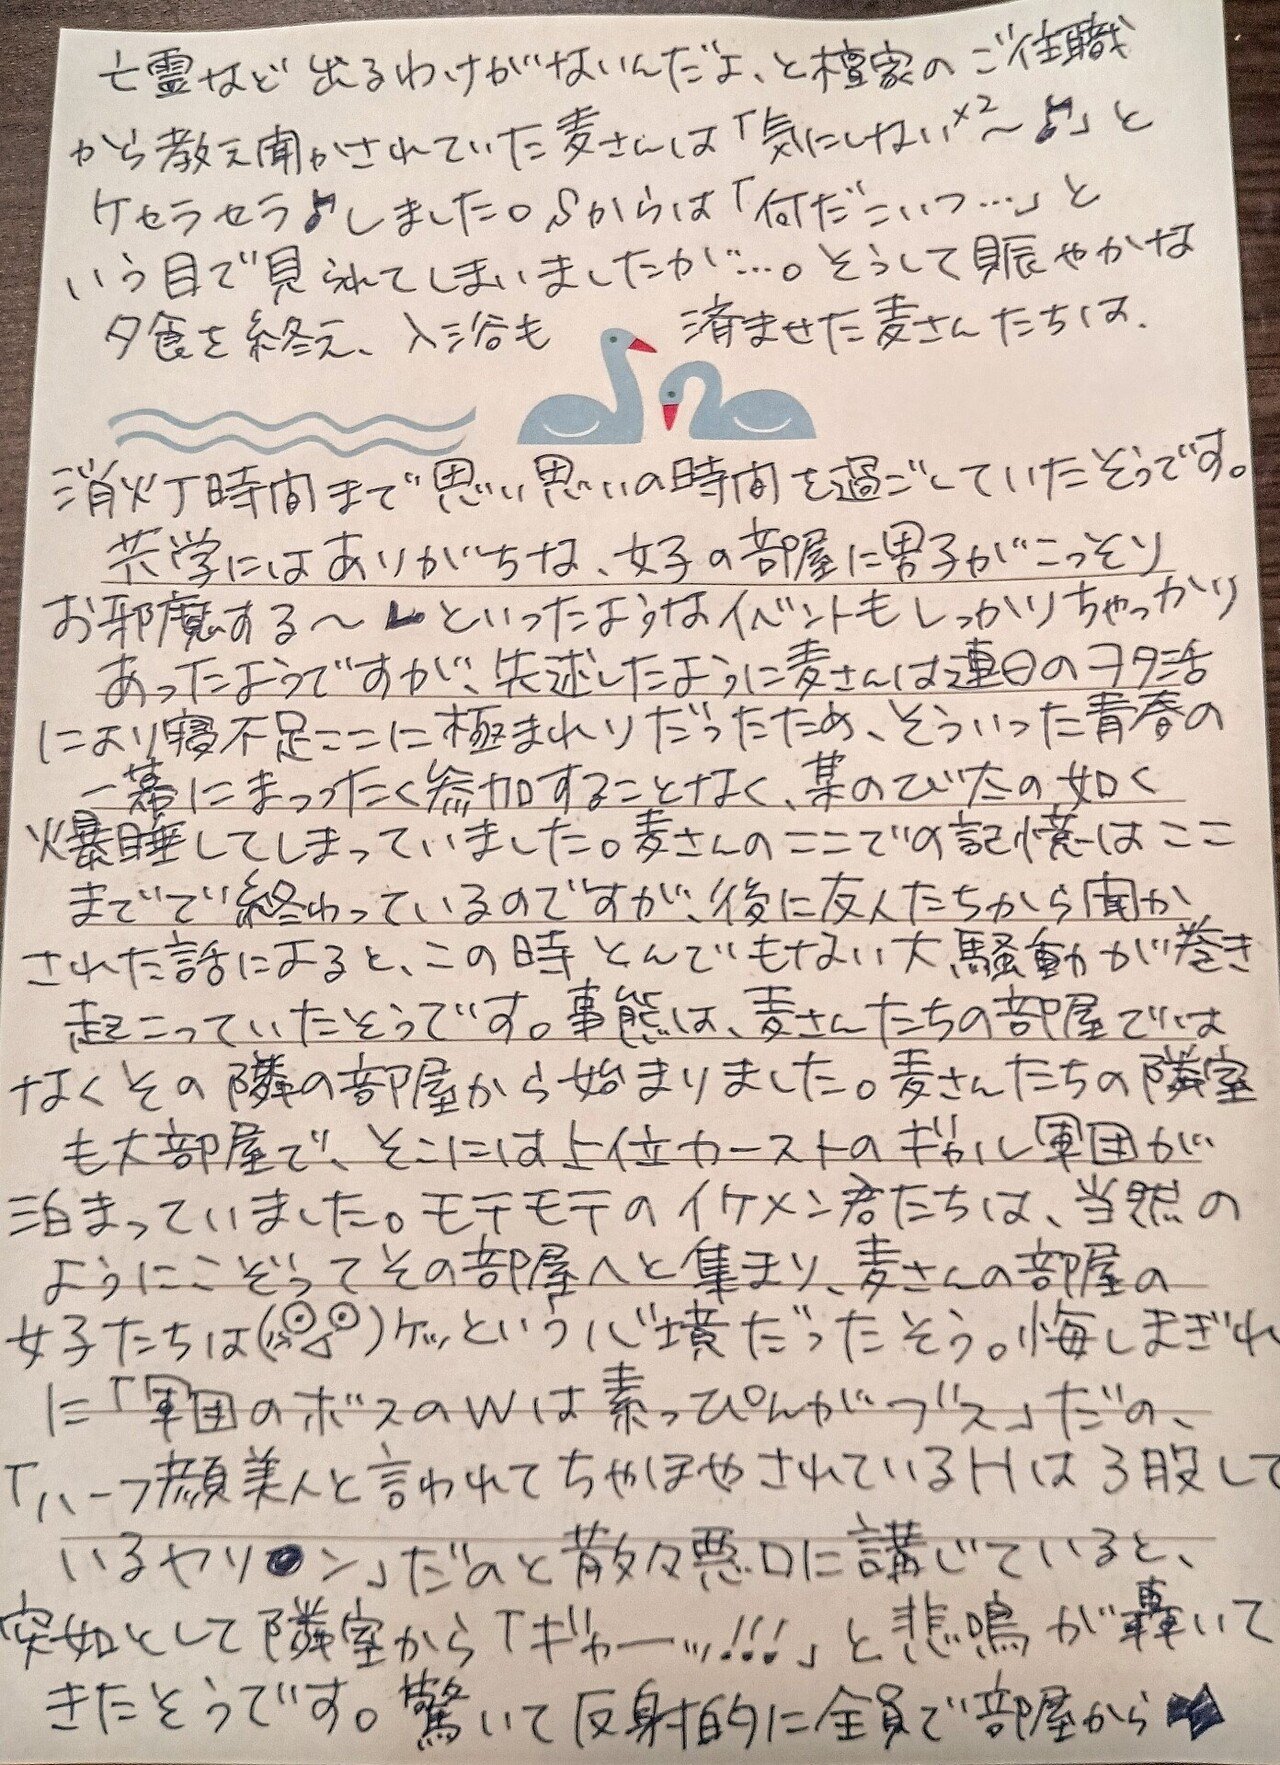 亡霊など出るわけがないんだよ、と檀家のご住職
から教え聞かされていた麦さんは「気にしない×2〜♪」と
ケセラセラ♪しました。Sからは「何だこいつ…」と
いう目で見られてしまいましたが…。そうして賑やかな
夕食を終え、入浴も 済ませた麦さんたちは、
消灯時間まで思い思いの時間を過ごしていたそうです。
共学にはありがちな、女子の部屋に男子がこっそり
お邪魔する〜といったようなイベントもしっかりちゃっかり
あったようですが、先述したように麦さんは連日のヲタ活
により寝不足ここに極まれりだったため、そういった青春の
一幕にまったく参加することなく、某のび太の如く
爆睡してしまっていました。麦さんのここでの記憶はここ
までで終わっているのですが、後に友人たちから聞か
された話によると、この時とんでもない大騒動が巻き
起こっていたそうです。事態は、麦さんたちの部屋では
なくその隣の部屋から始まりました。麦さんたちの隣室
も大部屋で、そこには上位カーストのギャル軍団が
泊まっていました。モテモテのイケメン君たちは、当然の
ようにこぞってその部屋へと集まり、麦さんの部屋の
女子たちは( )ケッという心境だったそう。悔しまぎれ
に「軍団のボスのWは素っぴんがブス」だの、
「ハーフ顔美人と言われてちやほやされているHは3股して
いるヤリ●ン」だのと散々悪口に講じていると、
突如として隣室から「ギャーッ!!!」と悲鳴が轟いて
きたそうです。驚いて反射的に全員で部屋から